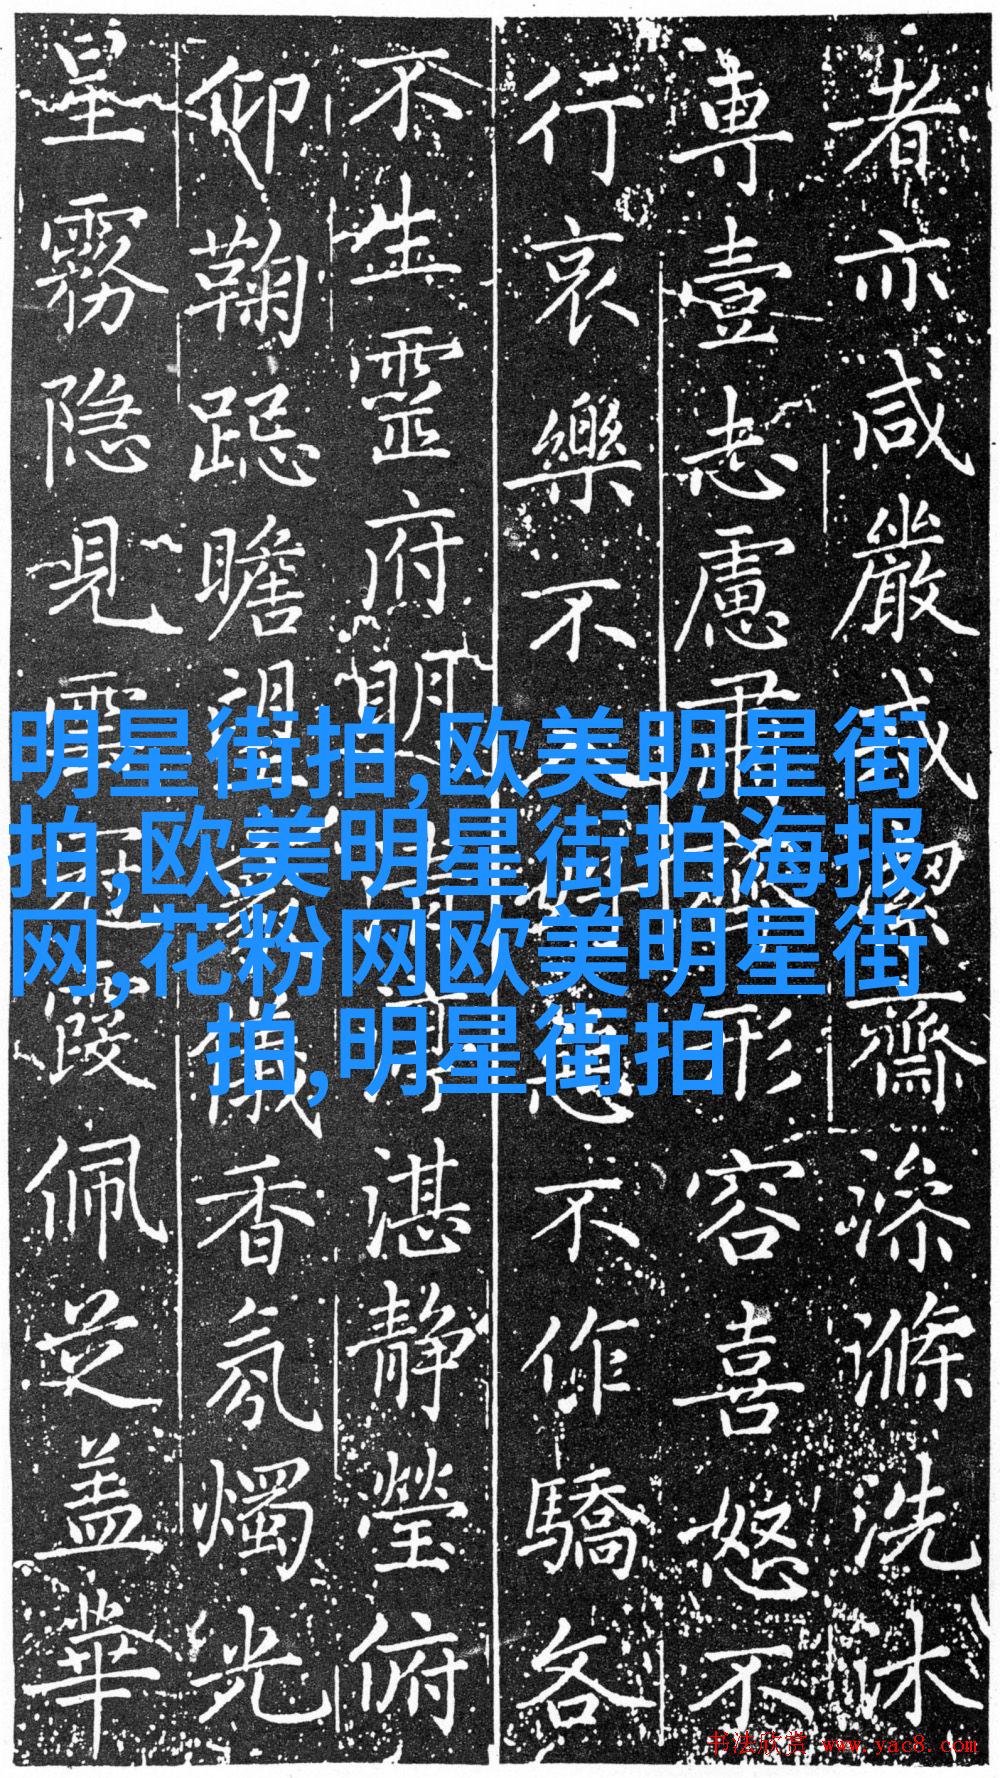 者亦咸嚴威齋澡滌洗沐
專壹志慮形容喜怒不
行哀樂不不作驕各
不生靈府明湛静瑩俯
仰鞠跽瞻香氛燭光
星霧隐見雲冠霞佩芝盖華
明星街拍,欧美明星街
拍,欧美明星街拍海报
网,花粉网欧美明星街
拍,明星街拍
书法欣赏 www.yac8.com